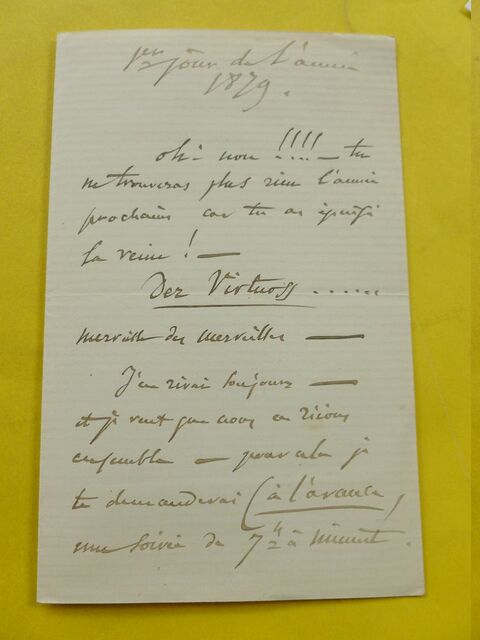 1er jour de l'année
1879.
oh! non !!!! — tu
ne trouveras plus rien l'année
prochaine car tu as épuisé
la veine ! —
Der Virtuoss .....
merveille des merveilles —
J'en rirai toujours —
et je veut que nous en riions
ensemble — pour cela je
te demanderai (à l'avance,
une soirée de 7h½ à minuit.